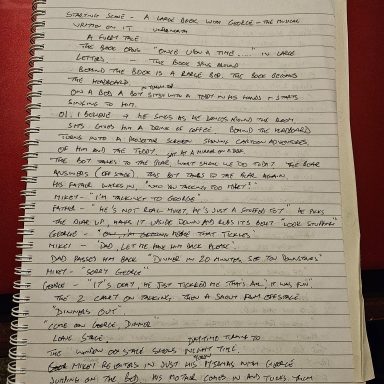 STARTING SCENE - A LARGE BOOK WITH GEORGE - THE MUSICAL
WRITTEN ON IT UNDERNEATH
A FURRY TALE
THE BOOK OPENS "ONCE UPON A TIME..... IN LARGE
LETTERS. - THE BOOK SPINS AROUND
BEHIND THE BOOK IS A LARGE BED, THE BOOK BECOMES
THE HEADBOARD.
ON A BED A BOY SITS WITH A TEDDY IN HIS HANDS & STARTS
SINGING TO HIM.
I BELIEVE → HE SINGS AS HE DANCES ROUND THE ROOM
GIVES HIM A DRINK OF COFFEE. BEHIND THE HEADBOARD
TURNS INTO A PROJECTOR SCREEN SHOWING CARTOON ADVENTURES
OF HIM AND THE TEDDY
THE BOY TALKS TO THE BEAR. WHAT SHALL WE DO TODAY? THE BEAR
ANSWERS (OFF STAGE) THIS BOY TALKS TO THE BEAR AGAIN
HIS FATHER WALKS IN. "WHO YOU TALKING TOO MIKEY?"
MIKEY - "I'M TALKING TO GEORGE"
FATHER - "HE'S NOT REAL MIKEY, HE'S JUST A STUFFED TOY" HE PICKS
THE BEAR UP, HANGS IT UPSIDE DOWN AND RUBS IT'S BELLY "LOOK STUFFING"
GEORGE - HEHEHE THAT TICKLES'
MIKEY - 'DAD, LET ME HAVE HIM BACK PLEASE'.
DAD PASSED HIM BACK "DINNER IN 20 MINUTES, SEE YOU DOWNSTAIRS"
MIKEY - "SORRY GEORGE"
GEORGE - "IT'S OKAY, HE JUST TICKLED ME THAT'S ALL, IT WAS FUN"
THE 2 CARRY ON TALKING THEN A SHOUT FROM OFFSTAGE.
"DINNERS OUT"
"COME ON GEORGE, DINNER"
LEAVE STAGE. DAYTIME TURNS TO
THE WINDOW OFF STAGE SHOWS NIGHT TIME.
MIKEY RE ENTERS IN JUST HIS PYJAMAS WITH GEORGE
JUMPING ON THE BED. HIS MOTHER COMES IN AND TUCKS THEM